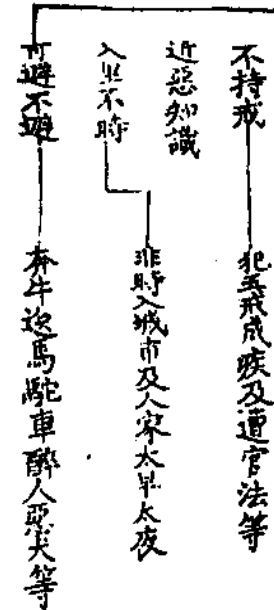 不持戒
犯五戒成疾及遭官法等
近惡知識
入里不時
非時入城市及人家太早太夜
可避不避
奔牛逸馬駝車醉人惡犬等